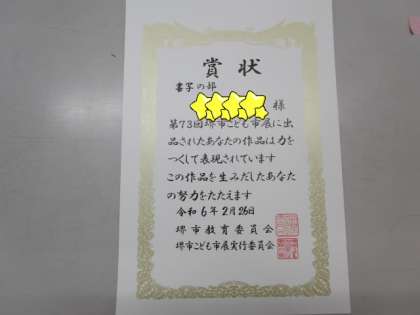 賞状
書写の部
様
第73回堺市こども市展に出
品されたあなたの作品は力を
つくして表現されています
この作品を生みだしたあなた
の努力をたたえます
令和6年2月25日
堺市教育委員会
堺市こども市展実行委員会